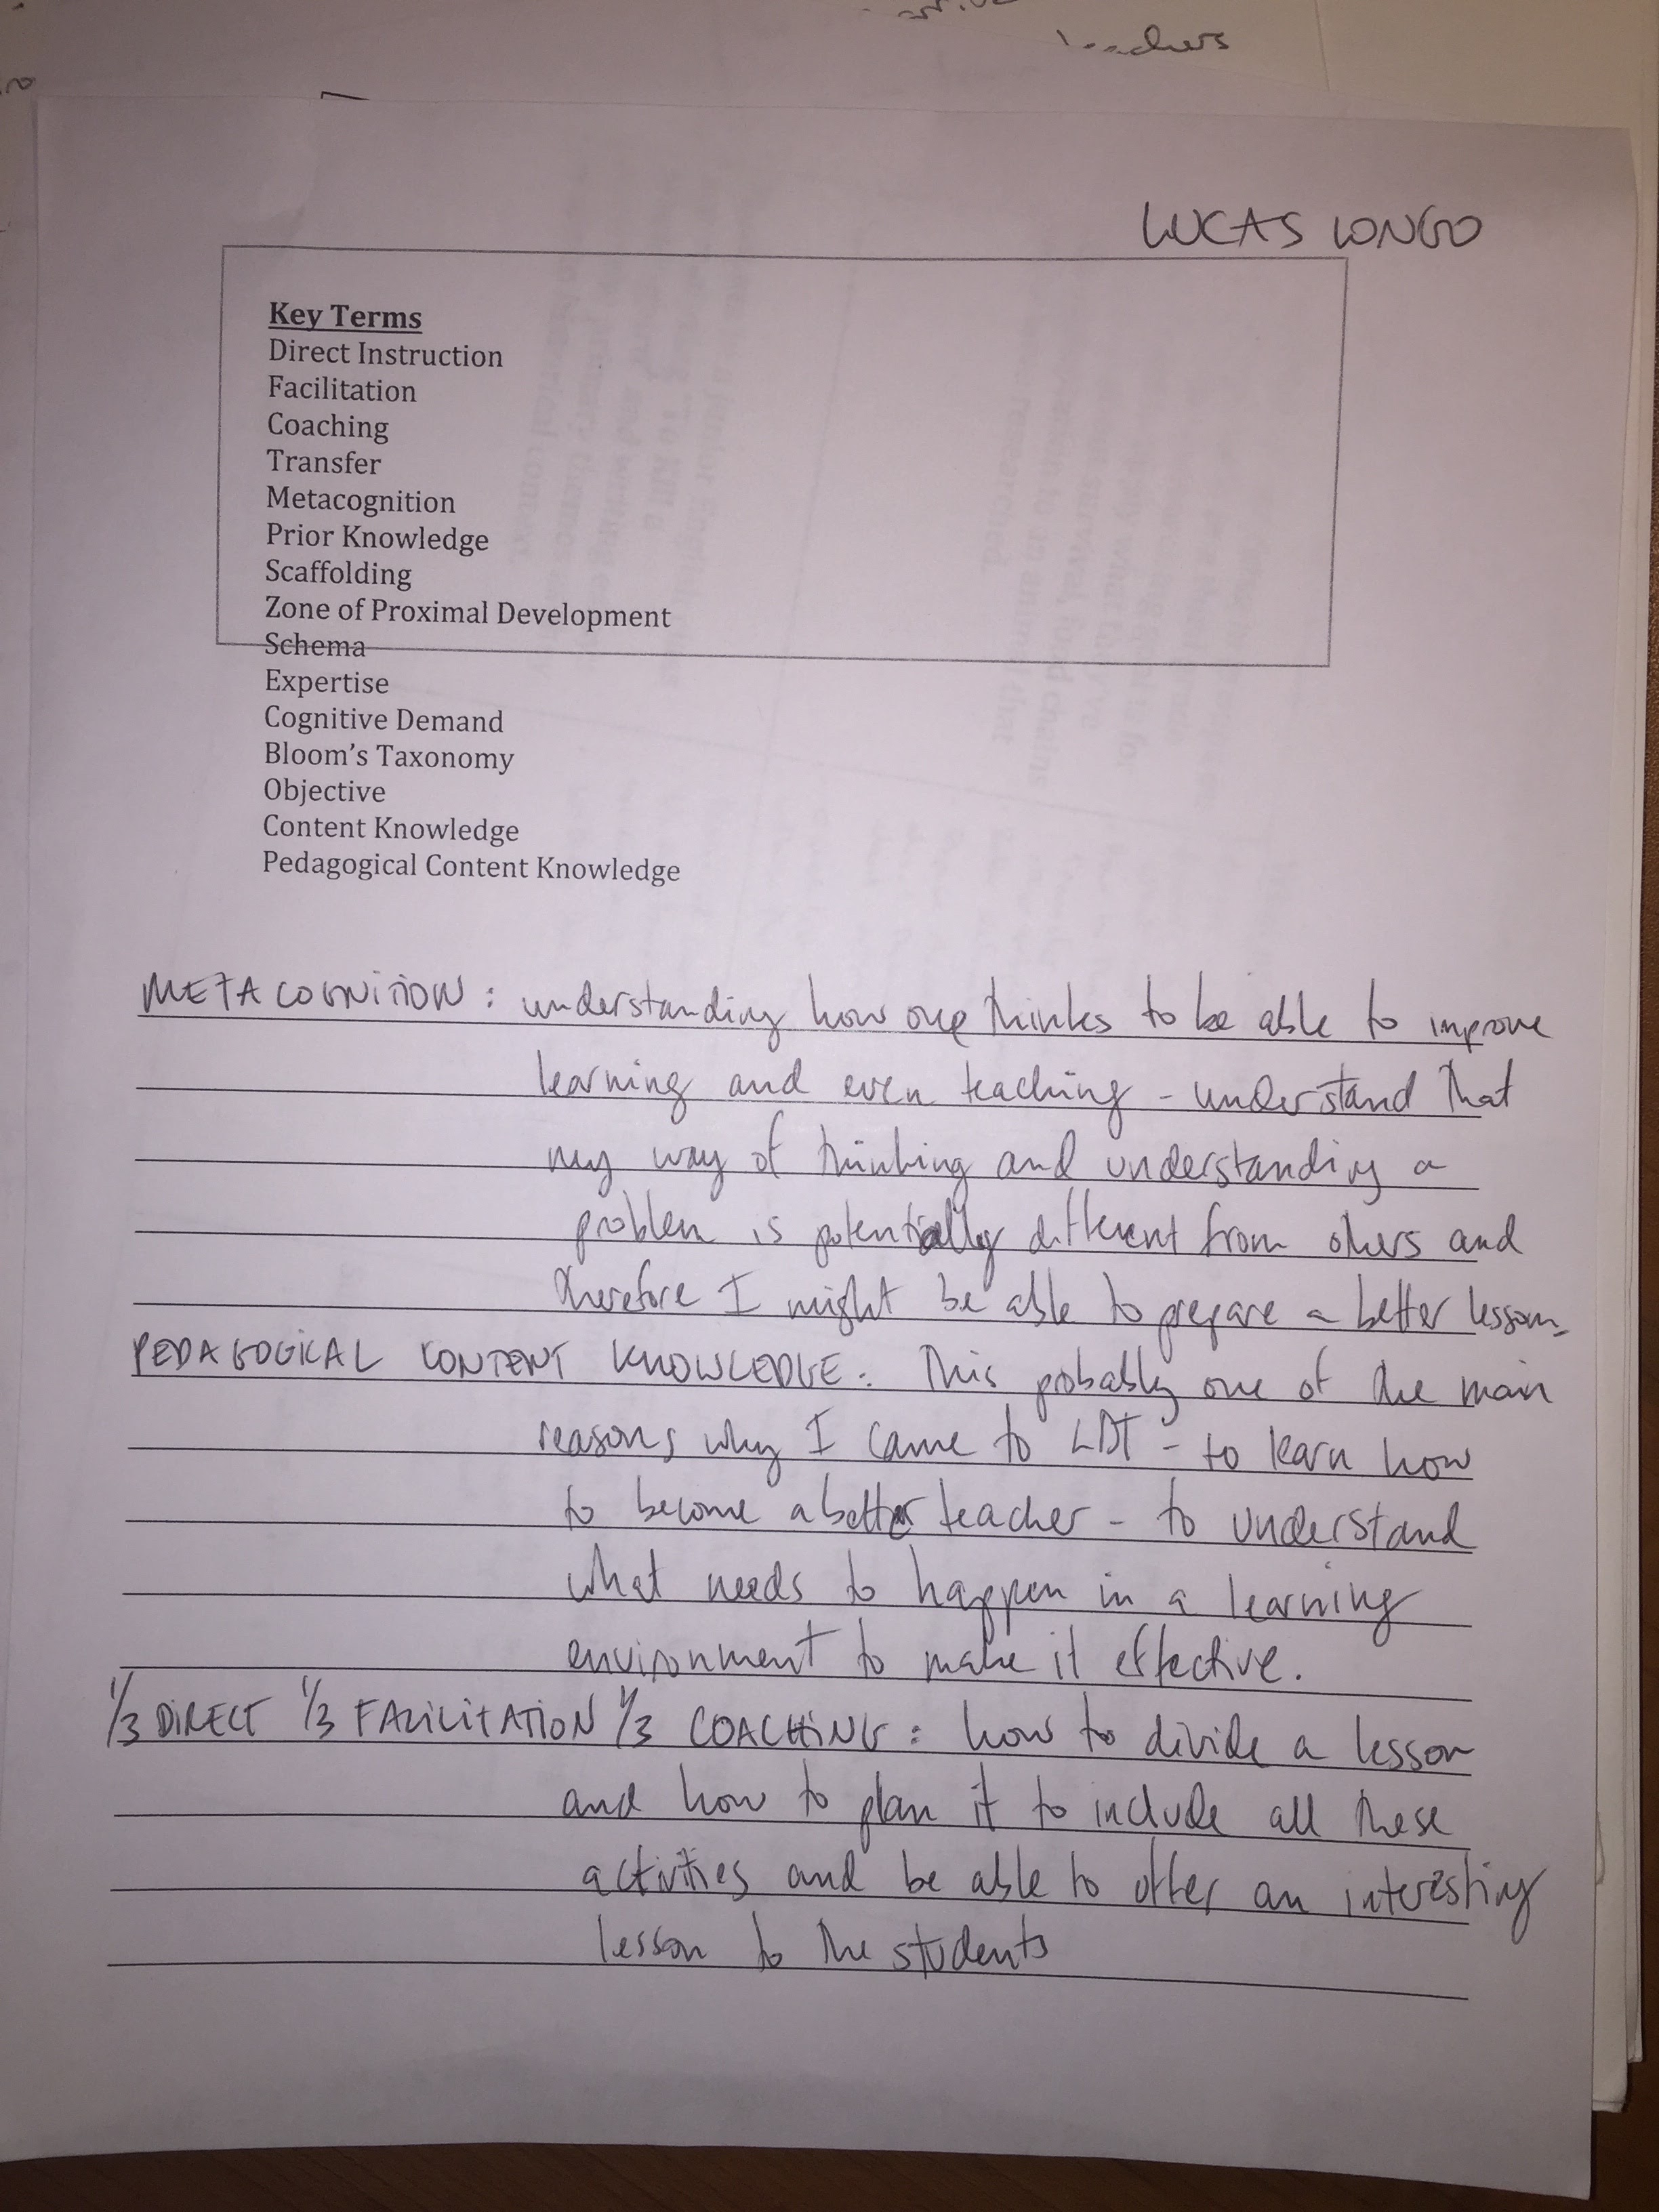 LUCAS LONGO
Key Terms
Direct Instruction
Facilitation
Coaching
Transfer
Metacognition
Prior Knowledge
Scaffolding
Zone of Proximal Development
Schema
Expertise
Cognitive Demand
Bloom's Taxonomy
Objective
Content Knowledge
Pedagogical Content Knowledge
METACOGNITION: understanding how one thinks to be able to improve
learning and even teaching - understand that
my way of thinking and understanding a
problem is potentially different from others and
therefore I might be able to prepare a better lesson.
PEDAGOGICAL CONTENT KNOWLEDGE: This probably one of the main
reasons why I came to LDT - to learn how
to become a better teacher - to understand
what needs to happen in a learning
environment to make it effective.
1/3 DIRECT 1/3 FACILITATION 1/3 COACHING: how to divide a lesson
and how to plan it to include all these
activities and be able to offer an interesting
lesson to the students